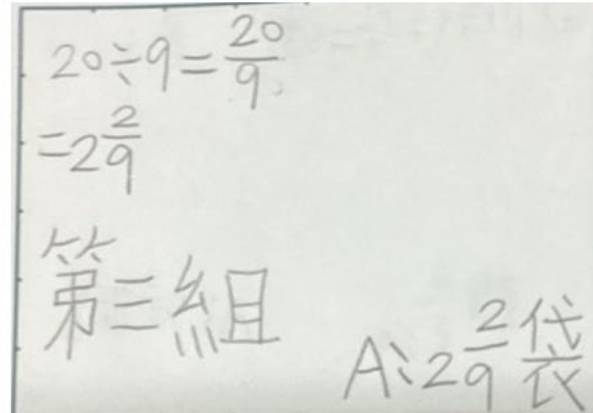 20÷9=20/9
=2 2/9
第三組
A:2 2/9袋